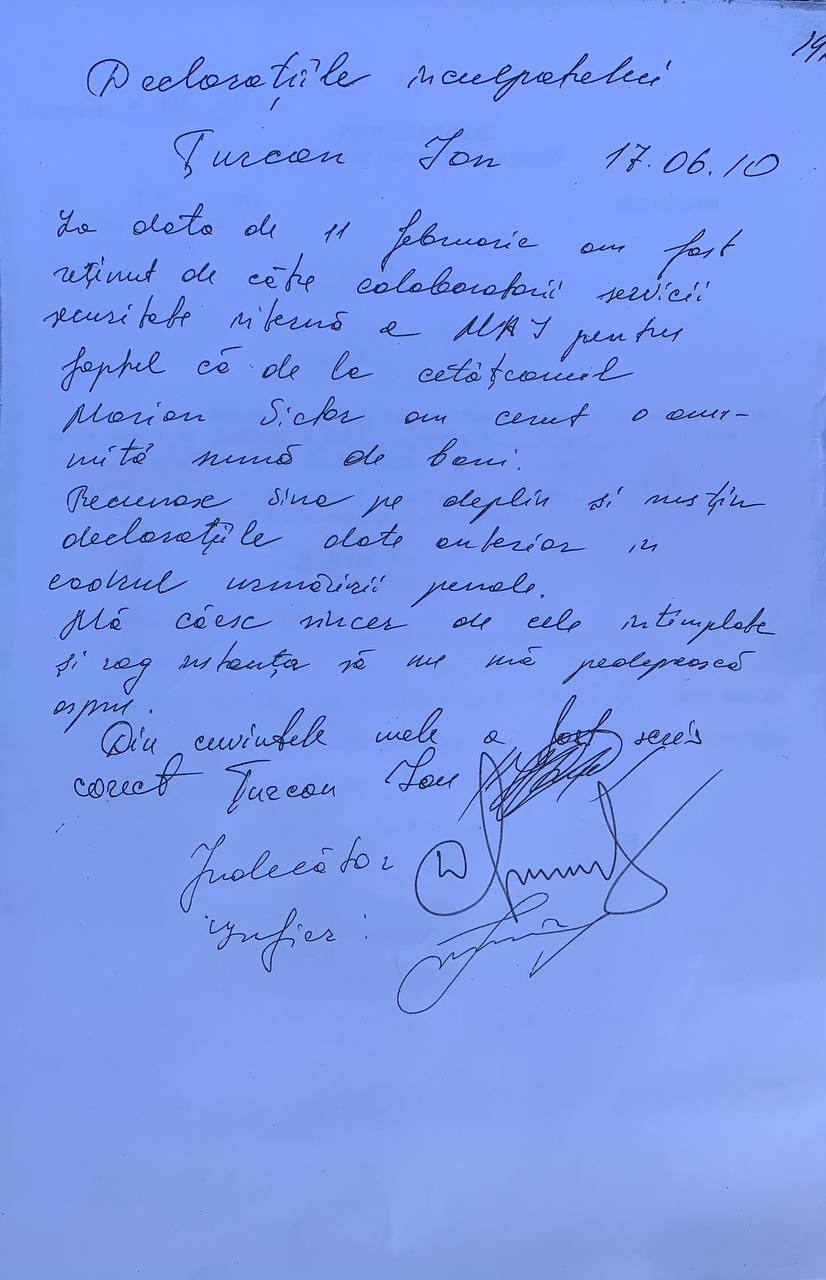 Declarațiile inculpatului
Țurcan Ion 17.06.10
La data de 11 februarie am fost
reținut de către colaboratorii servicii
securitate internă a MAI pentru
faptul că de la cetățeanul
Marian Victor am cerut o anu-
mită sumă de bani.
Recunosc vina pe deplin și susțin
declarațiile date anterior in
cadrul urmăririi penale.
Mă căesc sincer de cele intîmplate
și rog instanța să nu mă pedepsească
aspru.
Din cuvintele mele a fost scris
corect Țurcan Ion
Judecător
Grefier: